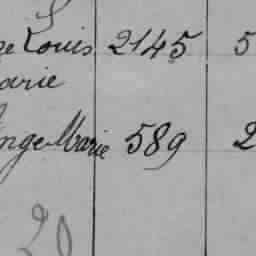 ge Louis 2145 5
arie
Ange Marie 589 2
20